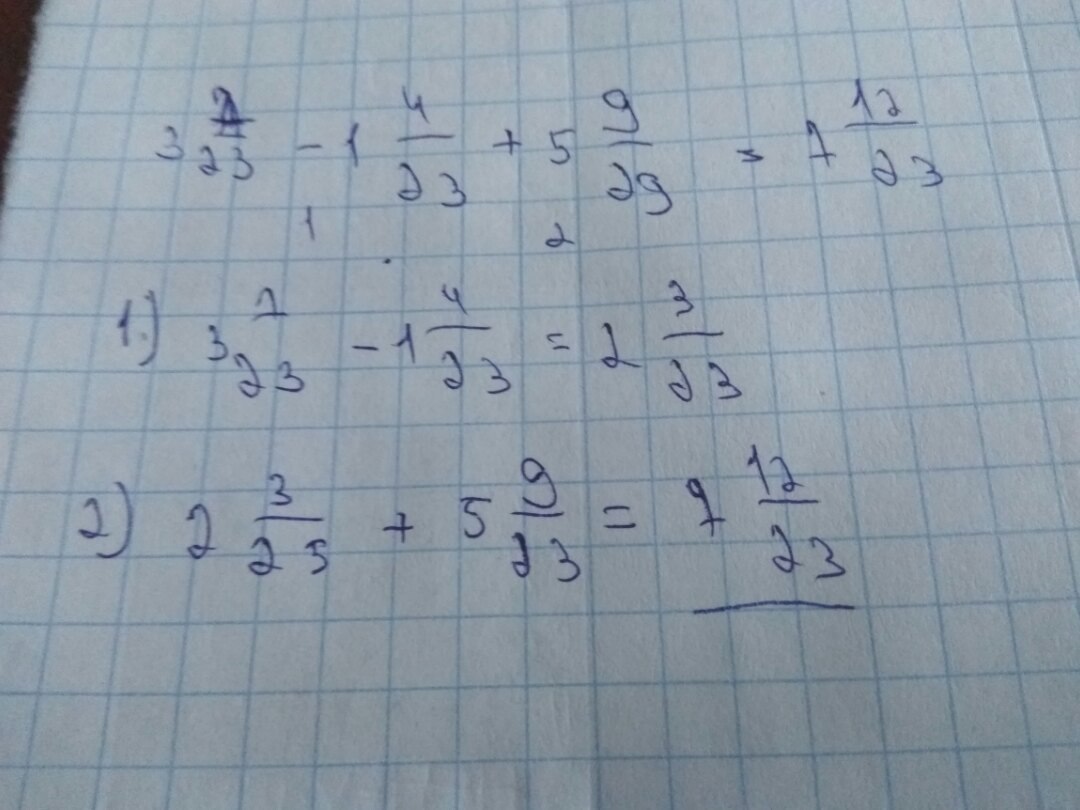 3 7/23 - 1 4/23 + 5 9/29 = 7 12/23
1 2
1.) 3 7/23 - 1 4/23 = 2 3/23
2) 2 3/25 + 5 9/23 = 7 12/23